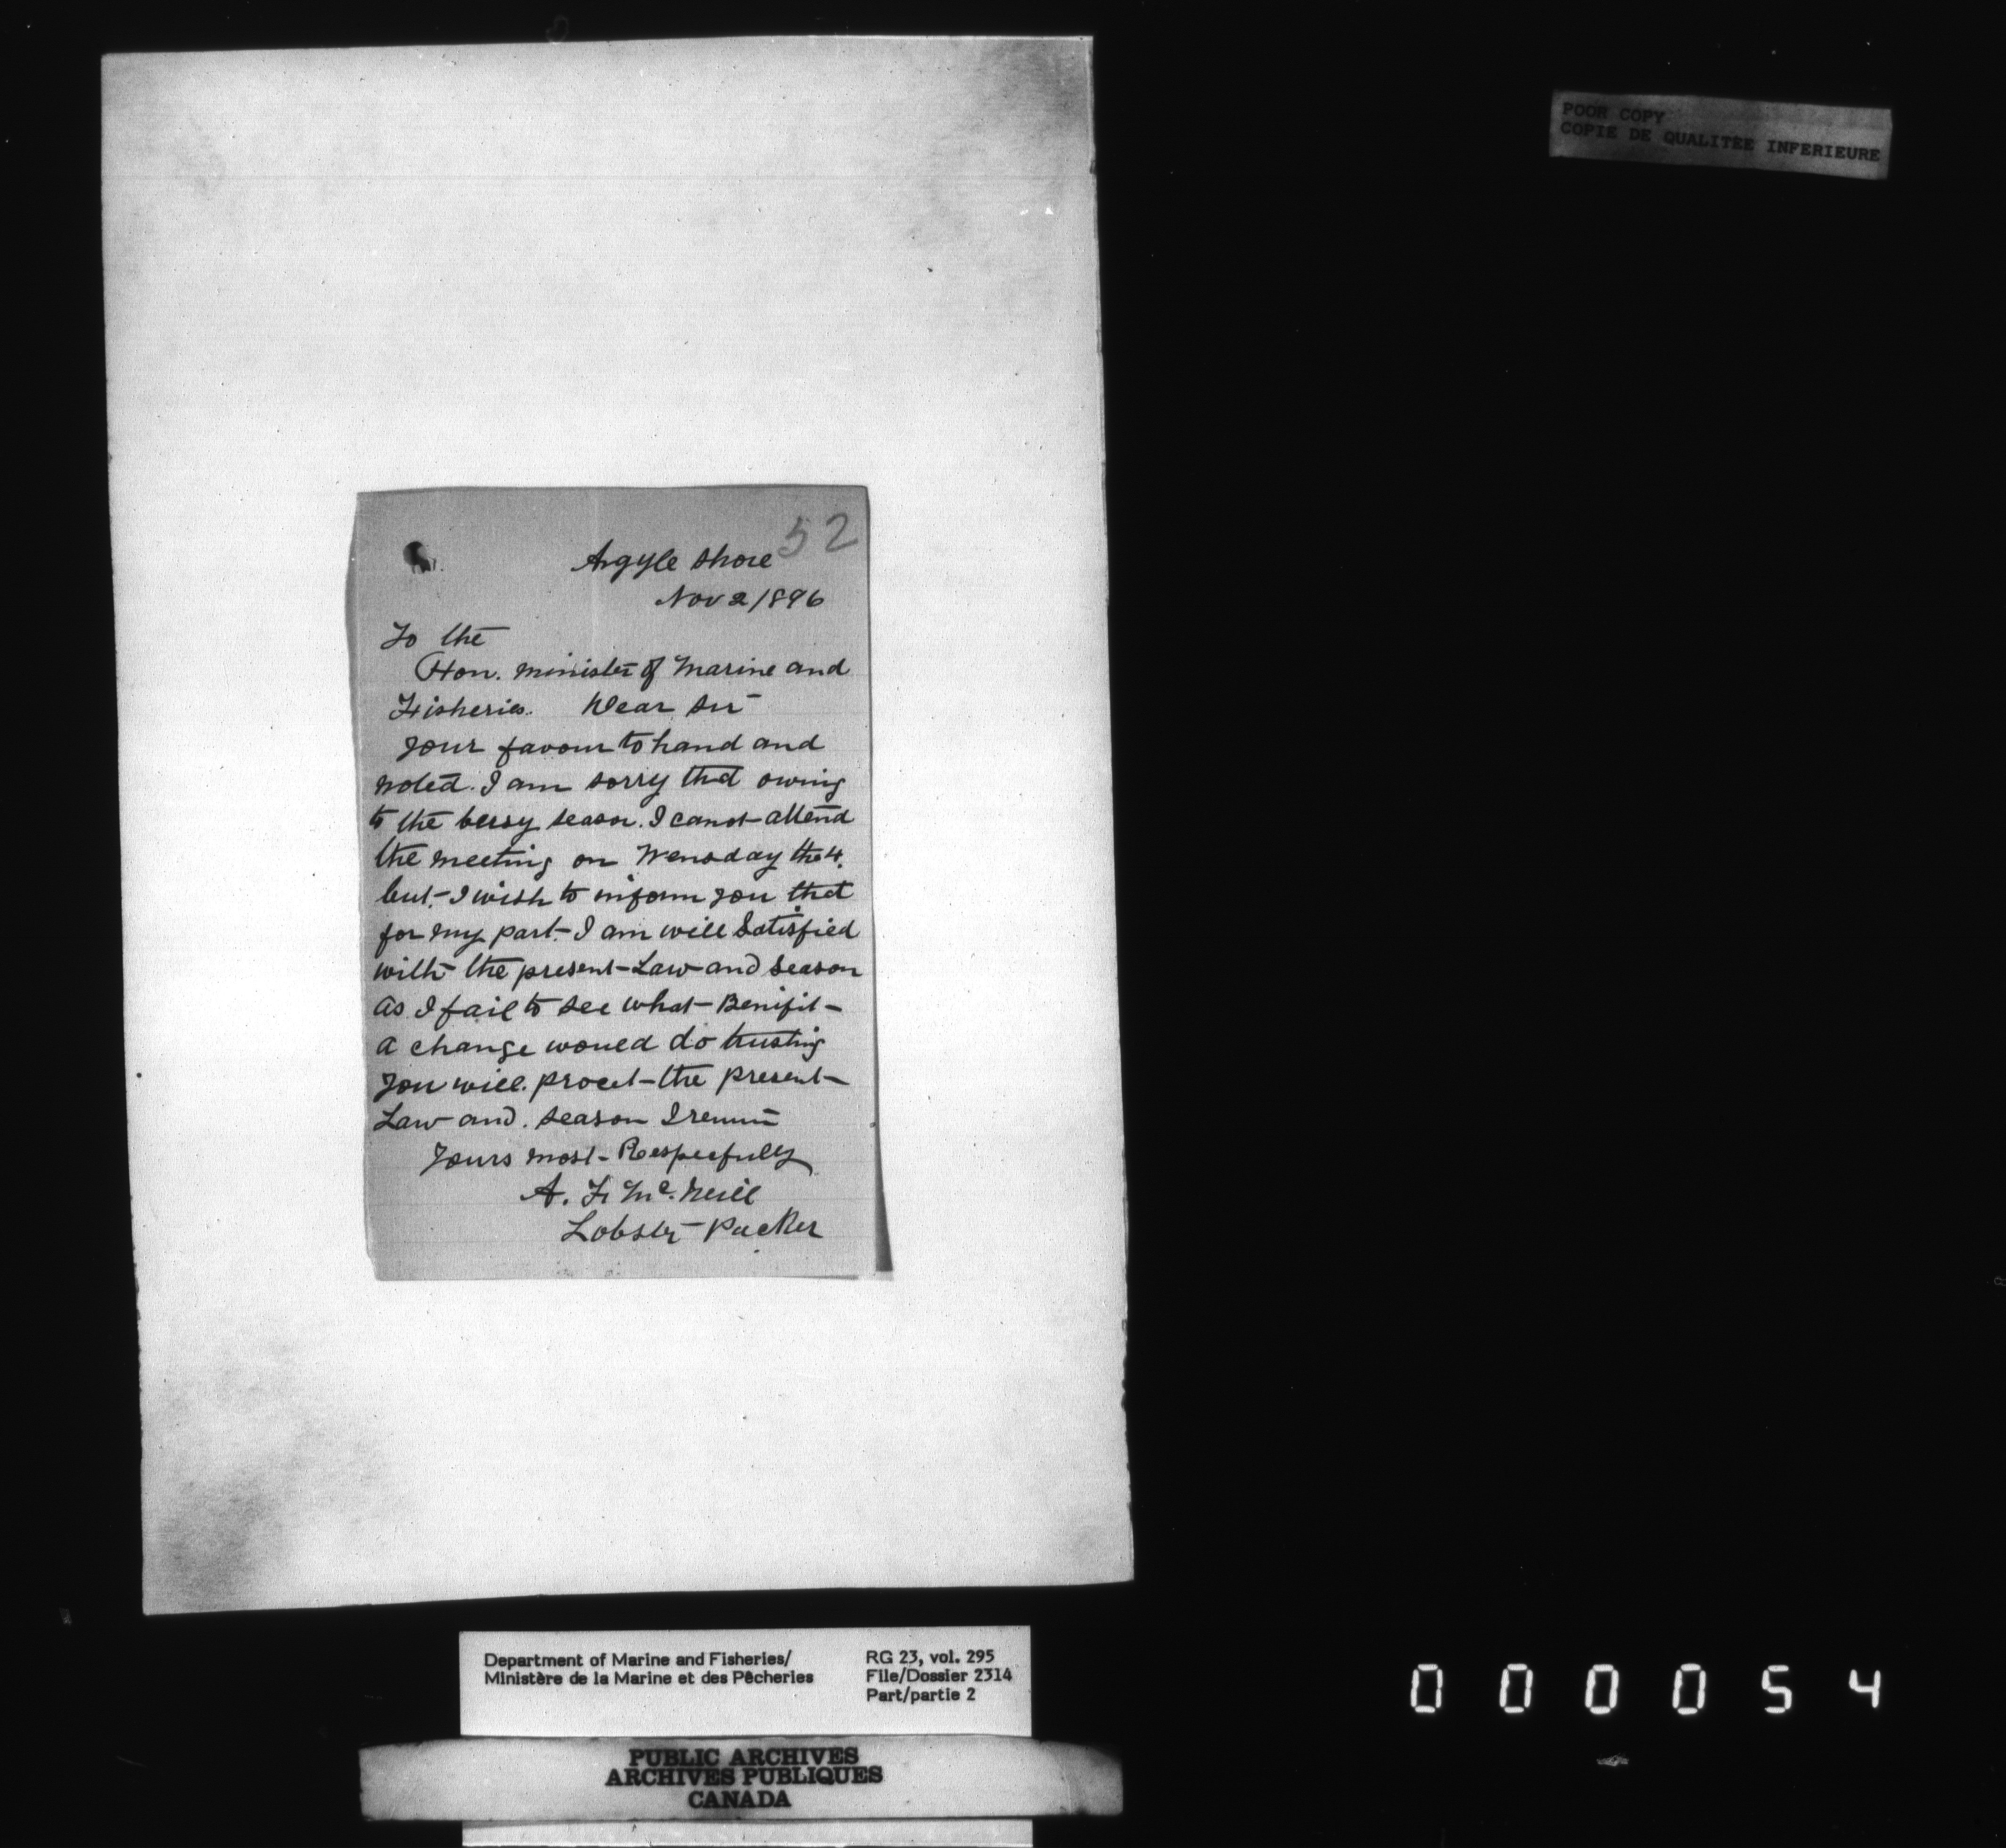 POOR COPY
COPIE DE QUALITÉE INFERIEURE
52
Argyle Shore
Nov 2/896
To the
Hon. minister of Marine and
Fisheries. Dear Sir
Your favour to hand and
noted. I am sorry that owing
to the bussy season. I canot attend
the meeting on Wensday the 4.
but I wish to inform you that
for my part I am will Satisfied
with the present Law and Season
as I fail to see what Benifit
a change would do trusting
you will. the present
Law and. season I remain
Yours most Respecfully
A. F. Mc. Neill
Lobster Packer
Department of Marine and Fisheries/
Ministère de la Marine et des Pêcheries
RG 23, vol. 295
File/Dossier 2314
Part/partie 2
PUBLIC ARCHIVES
ARCHIVES PUBLIQUES
CANADA
000054